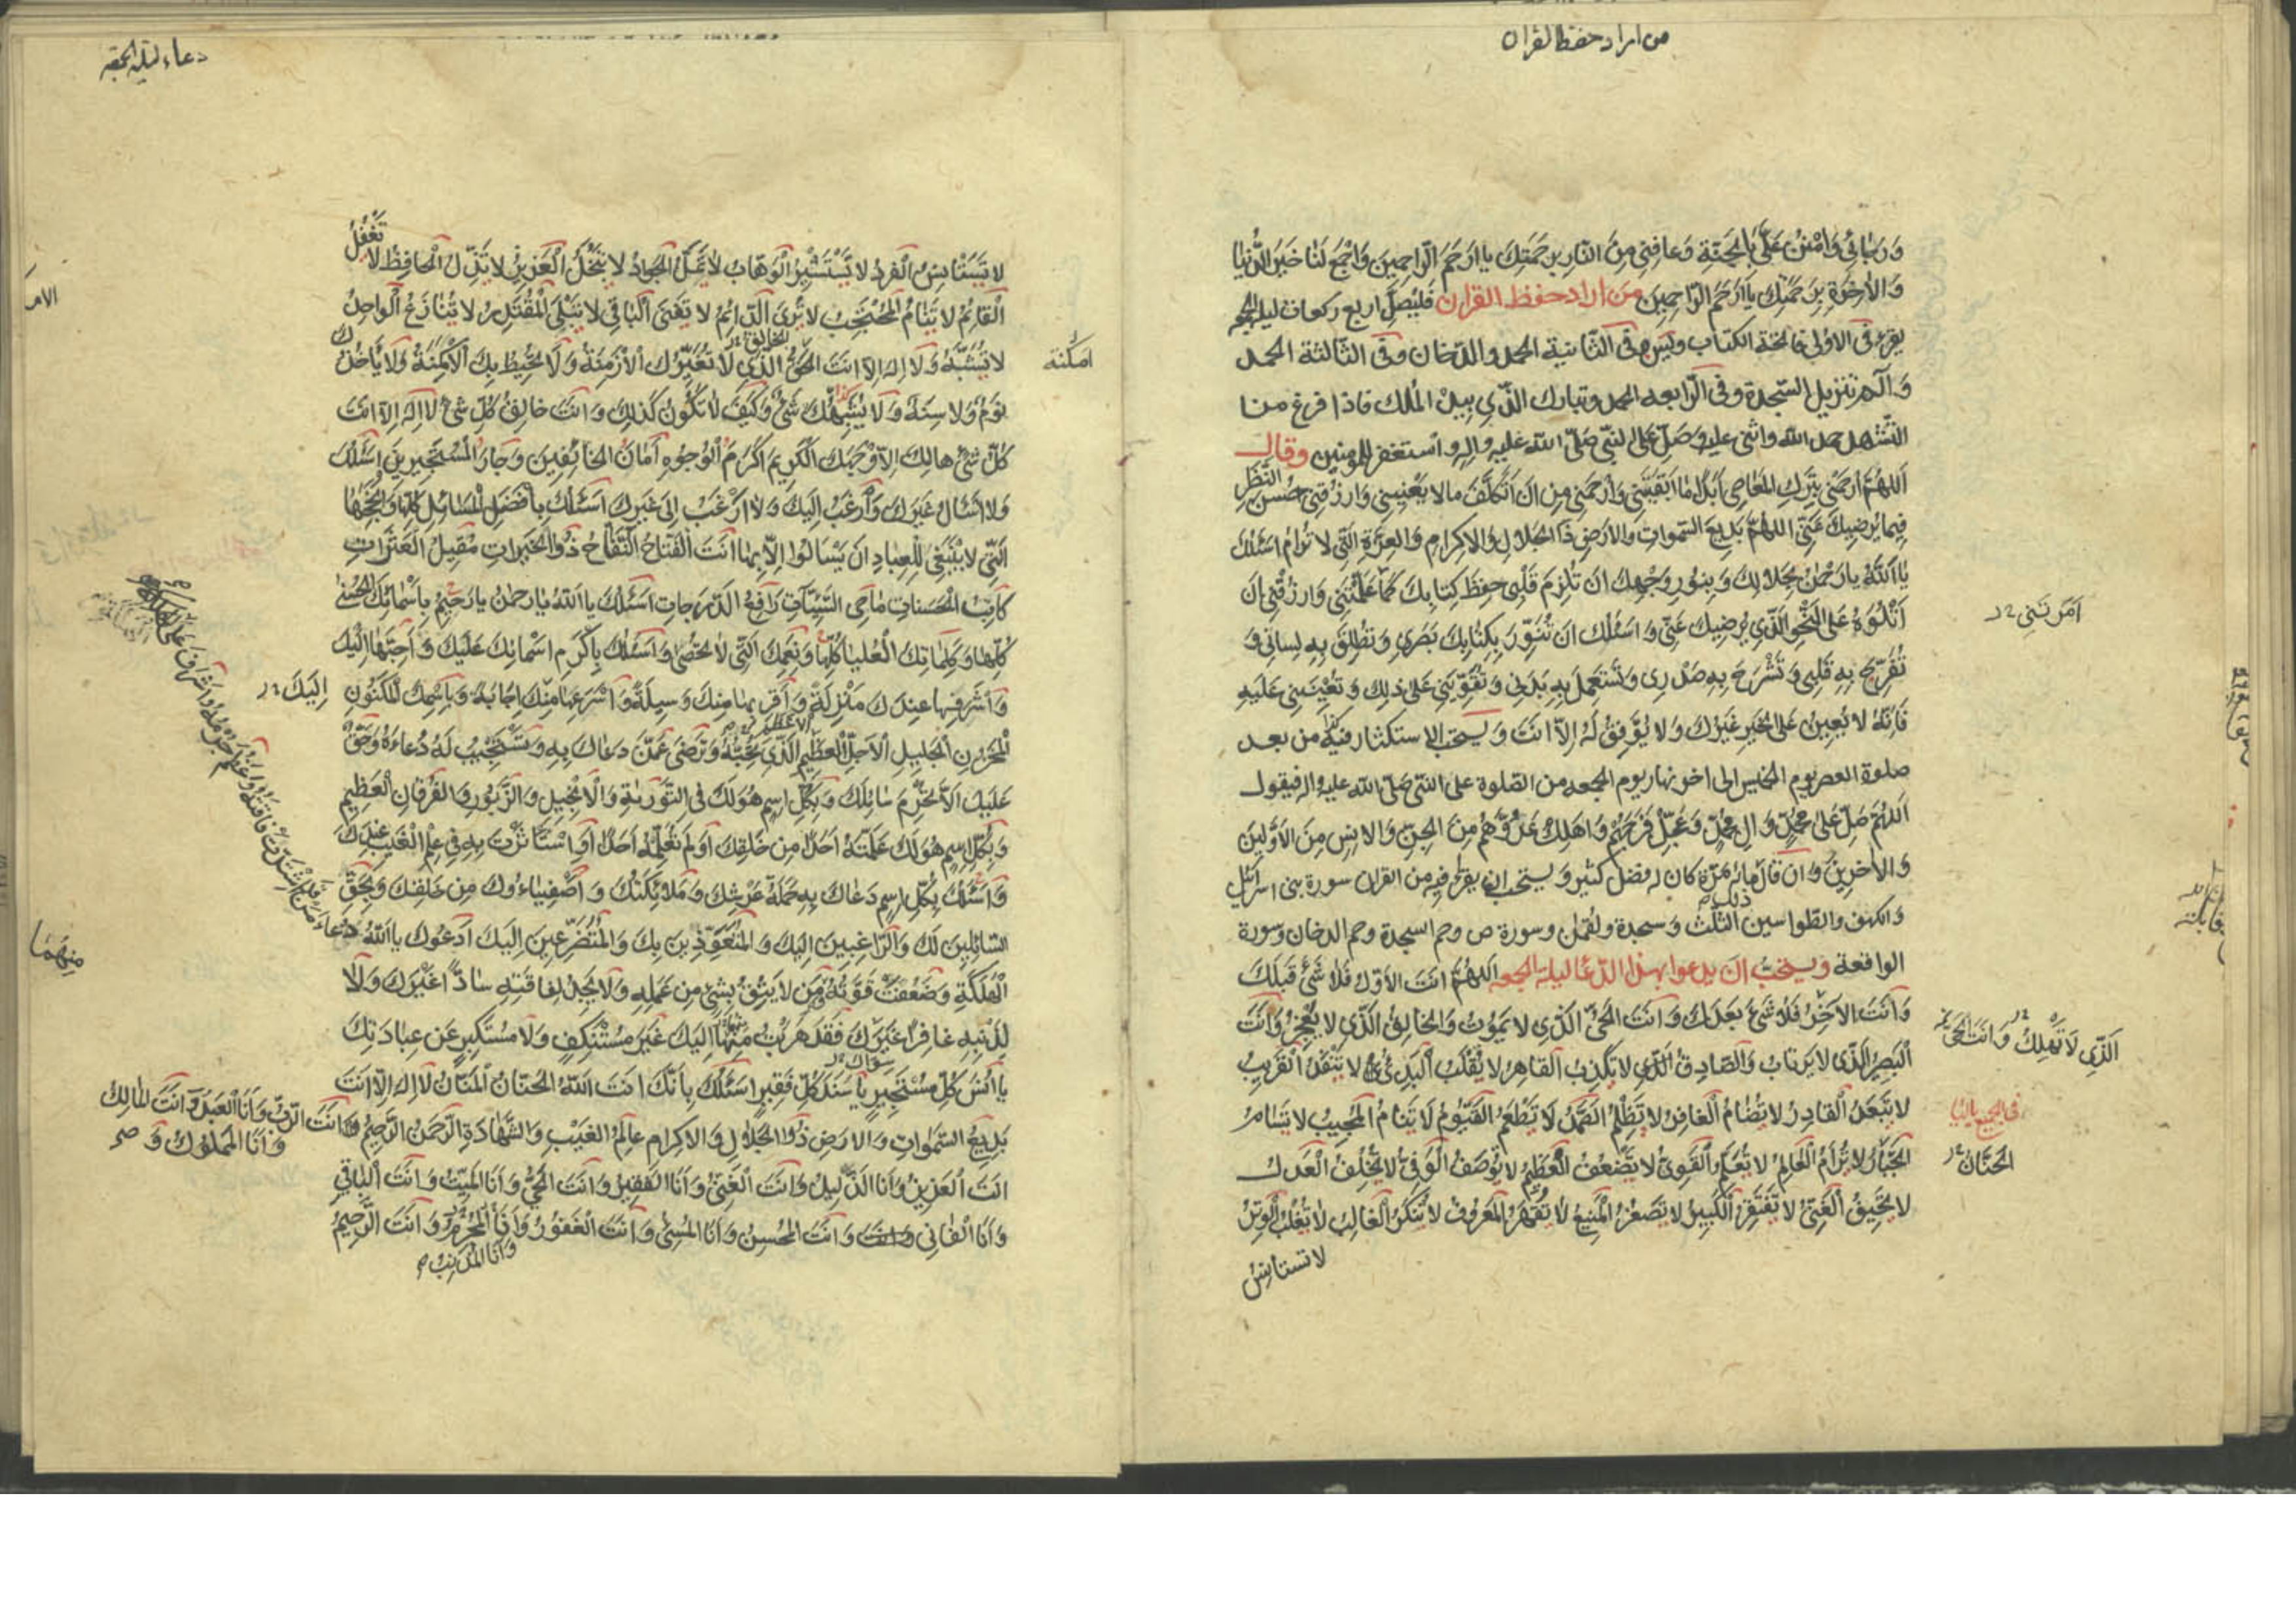 من اراد حفظ القران
وَرَجائي وَامْنُنْ عَلَيَّ بِالجَنَّةِ وَعافِني مِنَ النّارِ بِرَحمَتِكَ يا اَرحَمَ الرّاحِمينَ وَاجْمَع لَنا خَيرَ الدُّنيا
وَالاٰخِرَةِ بِرَحمَتِكَ يا اَرحَمَ الرّاحِمينَ من اراد حفظ القران فليصل اربع ركعات ليلة الجمعة
يقرء فى الاولى فاتحة الكتاب ويس وفى الثانية الحمد والدخان وفى الثالثة الحمد
والٓم تنزيل السجدة وفى الرابعه الحمد وتبارك الذي بيده الملك فاذا فرغ من
التشهد حمد الله واثنى عليه وصلى على النبى صلى الله عليه واله واستغفر للمؤمنين وقال
اللهُمَّ ارحَمني بِتَركِ المَعاصي اَبَداً ما اَبقَيتَني وَارحَمني مِن اَن اَتَكَلَّفَ ما لا يَعنيني وَارزُقني حُسنَ النَّظَرِ
فيما يُرضيكَ عَنّي اللهُمَّ بَديعَ السَّمواتِ وَالاَرضِ ذَا الجَلالِ وَالاِكرامِ وَالعِزَّةِ الَّتي لا تُرامُ اَسئَلُكَ
يا اَللهُ يا رَحمٰنُ بِجَلالِكَ وَبِنُورِ وَجهِكَ اَن تُلزِمَ قَلبي حِفظَ كِتابِكَ كَما عَلَّمتَني وَارزُقني اَن
اَمَرتَني
اَتلُوَهُ عَلَى النَّحوِ الَّذي يُرضيكَ عَنّي وَاَسئَلُكَ اَن تُنَوِّرَ بِكِتابِكَ بَصَري وَتُطلِقَ بِهِ لِساني وَ
تُفَرِّجَ بِهِ قَلبي وَتَشرَحَ بِهِ صَدري وَتَستَعمِلَ بِهِ بَدَني وَتُقَوِّيَني عَلى ذلِكَ وَتُعينَني عَلَيهِ
فَاِنَّهُ لا يُعينُ عَلَى الخَيرِ غَيرُكَ وَلا يُوَفِّقُ لَهُ اِلّا اَنتَ ويستحب الاستكثار فيه من بعد
صلوة العصر يوم الخميس الى اخر نهار يوم الجمعه من الصلوة على النبى صلى الله عليه واله فيقول
اللهُمَّ صَلِّ عَلى مُحَمَّدٍ وَالِ مُحَمَّدٍ وَعَجِّل فَرَجَهُم وَاَهلِك عَدُوَّهُم مِنَ الجِنِّ وَالاِنسِ مِنَ الاَوَّلينَ
وَالاٰخِرينَ وان قال ذلك مائة مرة كان له فضل كثير ويستحب ان يقرء فيه من القران سورة بنى اسرائيل
والكهف والطواسين الثلث وسجدة ولقمان وسورة ص وحم السجدة وحم الدخان وسورة
الواقعة ويستحب ان يدعوا بهذا الدعا ليلة الجمعه اللهُمَّ اَنتَ الاَوَّلُ فَلا شَيءَ قَبلَكَ
وَاَنتَ الاٰخِرُ فَلا شَيءَ بَعدَكَ وَاَنتَ الحَيُّ الَّذي لا يَمُوتُ وَالخالِقُ الَّذي لا يَعجِزُ وَاَنتَ
الَّذي لا تَهلِكُ وَاَنتَ الحَيُّ
البَصيرُ الَّذي لا يَرتابُ وَالصّادِقُ الَّذي لا تَكذِبُ القاهِرُ لا يُغلَبُ البَدِيءُ لا يَنفَدُ القَريبُ
لا يَبعُدُ القادِرُ لا تُضامُ الغافِرُ لا يَظلِمُ الصَّمَدُ لا يَطعَمُ القَيُّومُ لا يَنامُ المُجيبُ لا يَسأمُ
فى الجميع بالياء
الجَبّارُ لا يُرامُ العالِمُ لا يُعَلَّمُ القَوِيُّ لا يَضعُفُ العَظيمُ لا يُوصَفُ الوَفِيُّ لا يُخلِفُ العَدلُ
الحَنّانُ
لا يَحيفُ الغَنِيُّ لا يَفتَقِرُ الكَبيرُ لا يَصغُرُ المَنيعُ لا يُقهَرُ المَعرُوفُ لا يُنكَرُ الغالِبُ لا يُغلَبُ الوِترُ
لا تستانس
دعاء ليلة الجمعة
لا تَستَأنِسُ الفَردُ لا يَستَشيرُ الوَهّابُ لا يَمَلُّ الجَوادُ لا يَبخَلُ العَزيزُ لا يَذِلُّ الحافِظُ لا تَغفُلُ
القائِمُ لا يَنامُ المُحتَجِبُ لا يُرى الدّائِمُ لا يَفنَى الباقي لا يَبلَى المُقتَدِرُ لا يُنازَعُ الواحِدُ
لا يُشَبَّهُ وَلا اِلهَ اِلّا اَنتَ الحَقُّ الَّذي لا تُغَيِّرُكَ الاَزمِنَةُ وَلا تُحيطُ بِكَ الاَمكِنَةُ وَلا يَأخُذُكَ
امكنة
نَومٌ وَلا سِنَةٌ وَلا يُشبِهُكَ شَيءٌ وَكَيفَ لا تَكُونُ كَذلِكَ وَاَنتَ خالِقُ كُلِّ شَيءٍ لا اِلهَ اِلّا اَنتَ
كُلُّ شَيءٍ هالِكٌ اِلّا وَجهَكَ الكَريمَ اَكرَمَ الوُجُوهِ اَمانَ الخائِفينَ وَجارَ المُستَجيرينَ اَسئَلُكَ
وَلا اَسئَالُ غَيرَكَ وَاَرغَبُ اِلَيكَ وَلا اَرغَبُ اِلى غَيرِكَ اَسئَلُكَ بِاَفضَلِ المَسائِلِ كُلِّها وَاَنجَحِها
الَّتي لا يَنبَغي لِلعِبادِ اَن يَسأَلُوا اِلّا بِها اَنتَ الفَتّاحُ النَّفّاحُ ذُو الخَيراتِ مُقيلُ العَثَراتِ
كاتِبُ الحَسَناتِ ماحِي السَّيِّئاتِ رافِعُ الدَّرَجاتِ اَسئَلُكَ يا اَللهُ يا رَحمٰنُ يا رَحيمُ بِاَسمائِكَ الحُسنى
كُلِّها وَكَلِماتِكَ العُليا كُلِّها وَنِعَمِكَ الَّتي لا تُحصى وَاَسئَلُكَ بِاَكرَمِ اَسمائِكَ عَلَيكَ وَاَحَبِّها اِلَيكَ
وَاَشرَفِها عِندَكَ مَنزِلَةً وَاَقرَبِها مِنكَ وَسيلَةً وَاَسرَعِها مِنكَ اِجابَةً وَبِاسمِكَ المَكنُونِ
اِلَيكَ
المَخزُونِ الجَليلِ الاَجَلِّ العَظيمِ الاَعظَمِ الَّذي تُحِبُّهُ وَتَرضى عَمَّن دَعاكَ بِهِ وَتَستَجيبُ لَهُ دُعاءَهُ وَحَقٌّ
عَلَيكَ اَلّا تَحرِمَ سائِلَكَ وَبِكُلِّ اسمٍ هُوَ لَكَ فِي التَّوراةِ وَالاِنجيلِ وَالزَّبُورِ وَالفُرقانِ العَظيمِ
وَبِكُلِّ اسمٍ هُوَ لَكَ عَلَّمتَهُ اَحَداً مِن خَلقِكَ اَو لَم تُعَلِّمهُ اَحَداً اَوِ استَأثَرتَ بِهِ في عِلمِ الغَيبِ عِندَكَ
وَاَسئَلُكَ بِكُلِّ اسمٍ دَعاكَ بِهِ حَمَلَةُ عَرشِكَ وَمَلائِكَتُكَ وَاَصفِياءُوكَ مِن خَلقِكَ وَبِحَقِّ
السّائِلينَ لَكَ وَالرّاغِبينَ اِلَيكَ وَالمُتَعَوِّذينَ بِكَ وَالمُتَضَرِّعينَ اِلَيكَ اَدعُوكَ يا اَللهُ
دُعاءَ مَنِ اشتَدَّت فاقَتُهُ وَعَظُمَ جُرمُهُ وَاَشرَفَ عَلَى الهَلَكَةِ
الهَلَكَةِ وَضَعُفَت قُوَّتُهُ وَمَن لا يَثِقُ بِشَيءٍ مِن عَمَلِهِ وَلا يَجِدُ لِفاقَتِهِ سادّاً غَيرَكَ وَلا
لِذَنبِهِ غافِراً غَيرَكَ فَقَد هَرَبتُ مِنها اِلَيكَ غَيرَ مُستَنكِفٍ وَلا مُستَكبِرٍ عَن عِبادَتِكَ
مِنهُما
يا اُنسَ كُلِّ مُستَجيرٍ يا سَنَدَ كُلِّ فَقيرٍ اَسئَلُكَ بِاَنَّكَ اَنتَ اللهُ الحَنّانُ المَنّانُ لا اِلهَ اِلّا اَنتَ
بَديعُ السَّمواتِ وَالاَرضِ ذُو الجَلالِ وَالاِكرامِ عالِمُ الغَيبِ وَالشَّهادَةِ الرَّحمنُ الرَّحيمُ
وَاَنتَ الرَّبُّ وَاَنَا العَبدُ وَاَنتَ المالِكُ
وَاَنَا المَملُوكُ وَ
اَنتَ العَزيزُ وَاَنَا الذَّليلُ وَاَنتَ الغَنِيُّ وَاَنَا الفَقيرُ وَاَنتَ الحَيُّ وَاَنَا المَيِّتُ وَاَنتَ الباقي
وَاَنَا الفاني وَاَنتَ المُحسِنُ وَاَنَا المُسيءُ وَاَنتَ الغَفُورُ وَاَنَا المُجرِمُ وَاَنتَ الرَّحيمُ
وَاَنَا المُذنِبُ